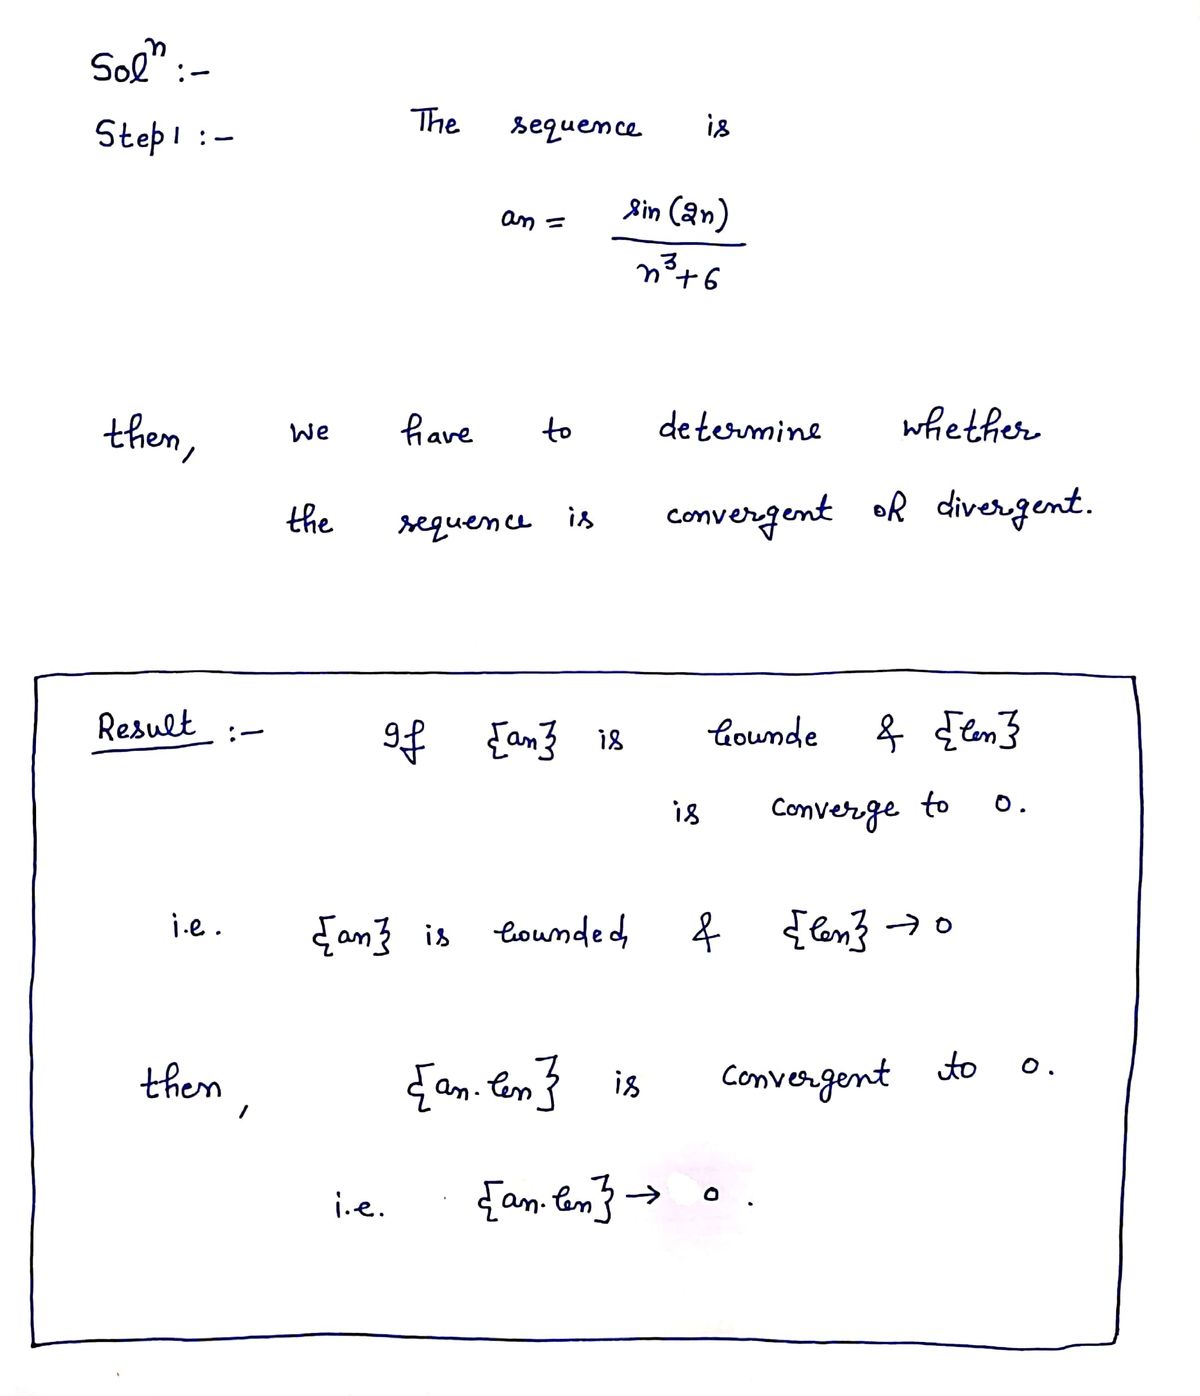 Solⁿ :-
Step 1 :- The sequence is
an = sin (2n)
n³+6
then, we have to determine whether
the sequence is convergent oR divergent.
Result :- If {an} is bounde & {bn}
is converge to 0.
i.e. {an} is bounded & {bn} → 0
then, {an.bn} is convergent to 0.
i.e. {an.bn} → 0.